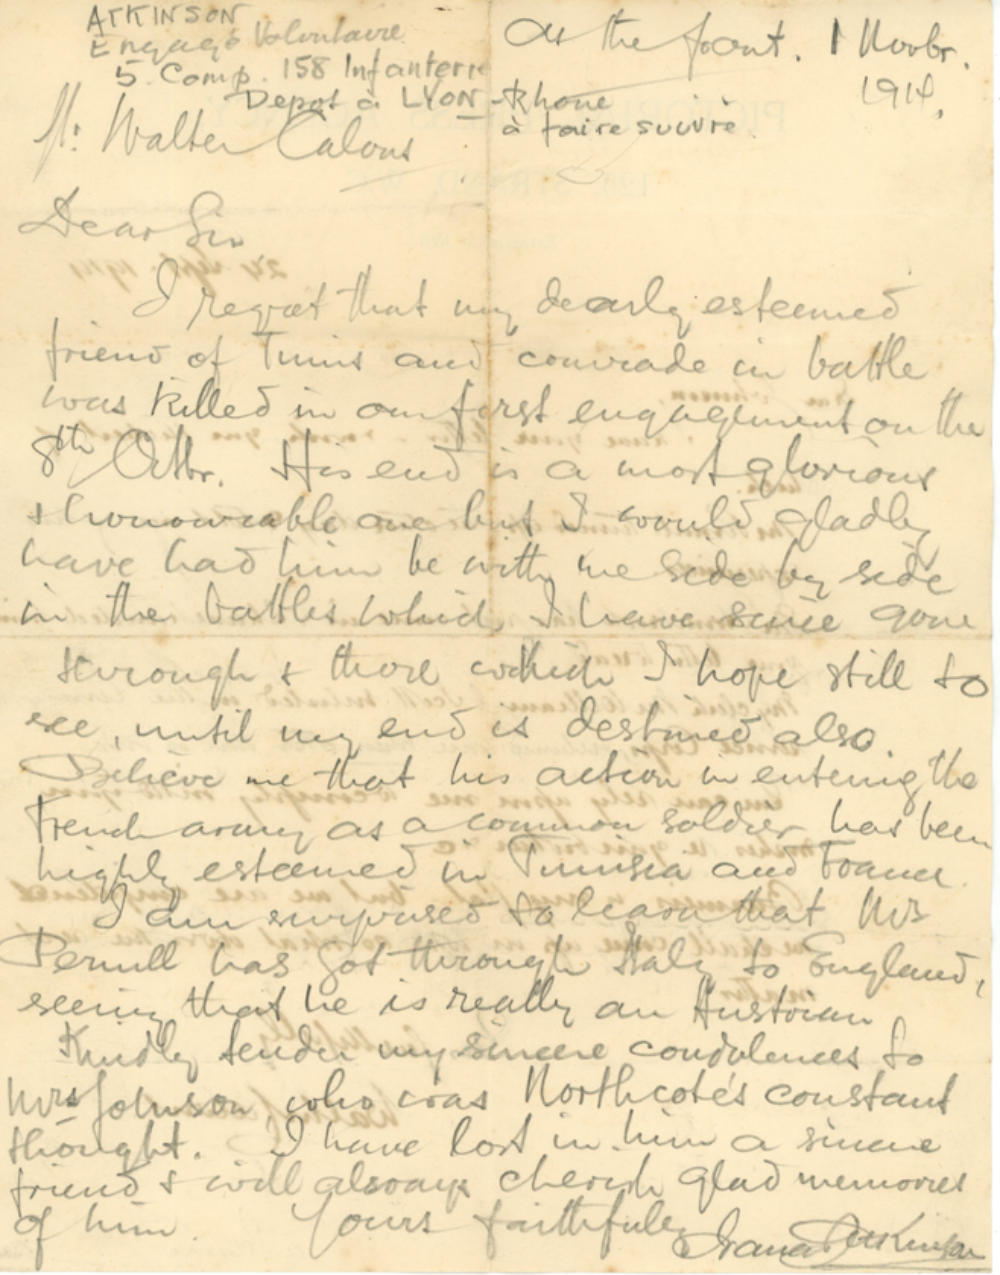 ATKINSON
Engagé Volontaire
5 Comp. 158 Infanterie
Depot à LYON - Rhone
à faire suivre
At the front. 1 Novbr.
1914.
Mr Walter
Dear Sir
I regret that my dearly esteemed
friend of Tunis and comrade in battle
was killed in our first engagement on the
8th Octbr. His end is a most glorious
& honourable one but I would gladly
have had him be with me side by side
in the battles which I have since gone
through & those which I hope still to
see, until my end is destined also.
Believe me that his action in entering the
French army as a common soldier has been
highly esteemed in Tunisia and France.
I am surprised to learn that Mr
has got through Italy to England,
seeing that he is really an Austrian
Kindly tender my sincere condolences to
Mrs Johnson who was Northcote's constant
thought. I have lost in him a sincere
friend & will always cherish glad memories
of him. Yours faithfully
Atkinson